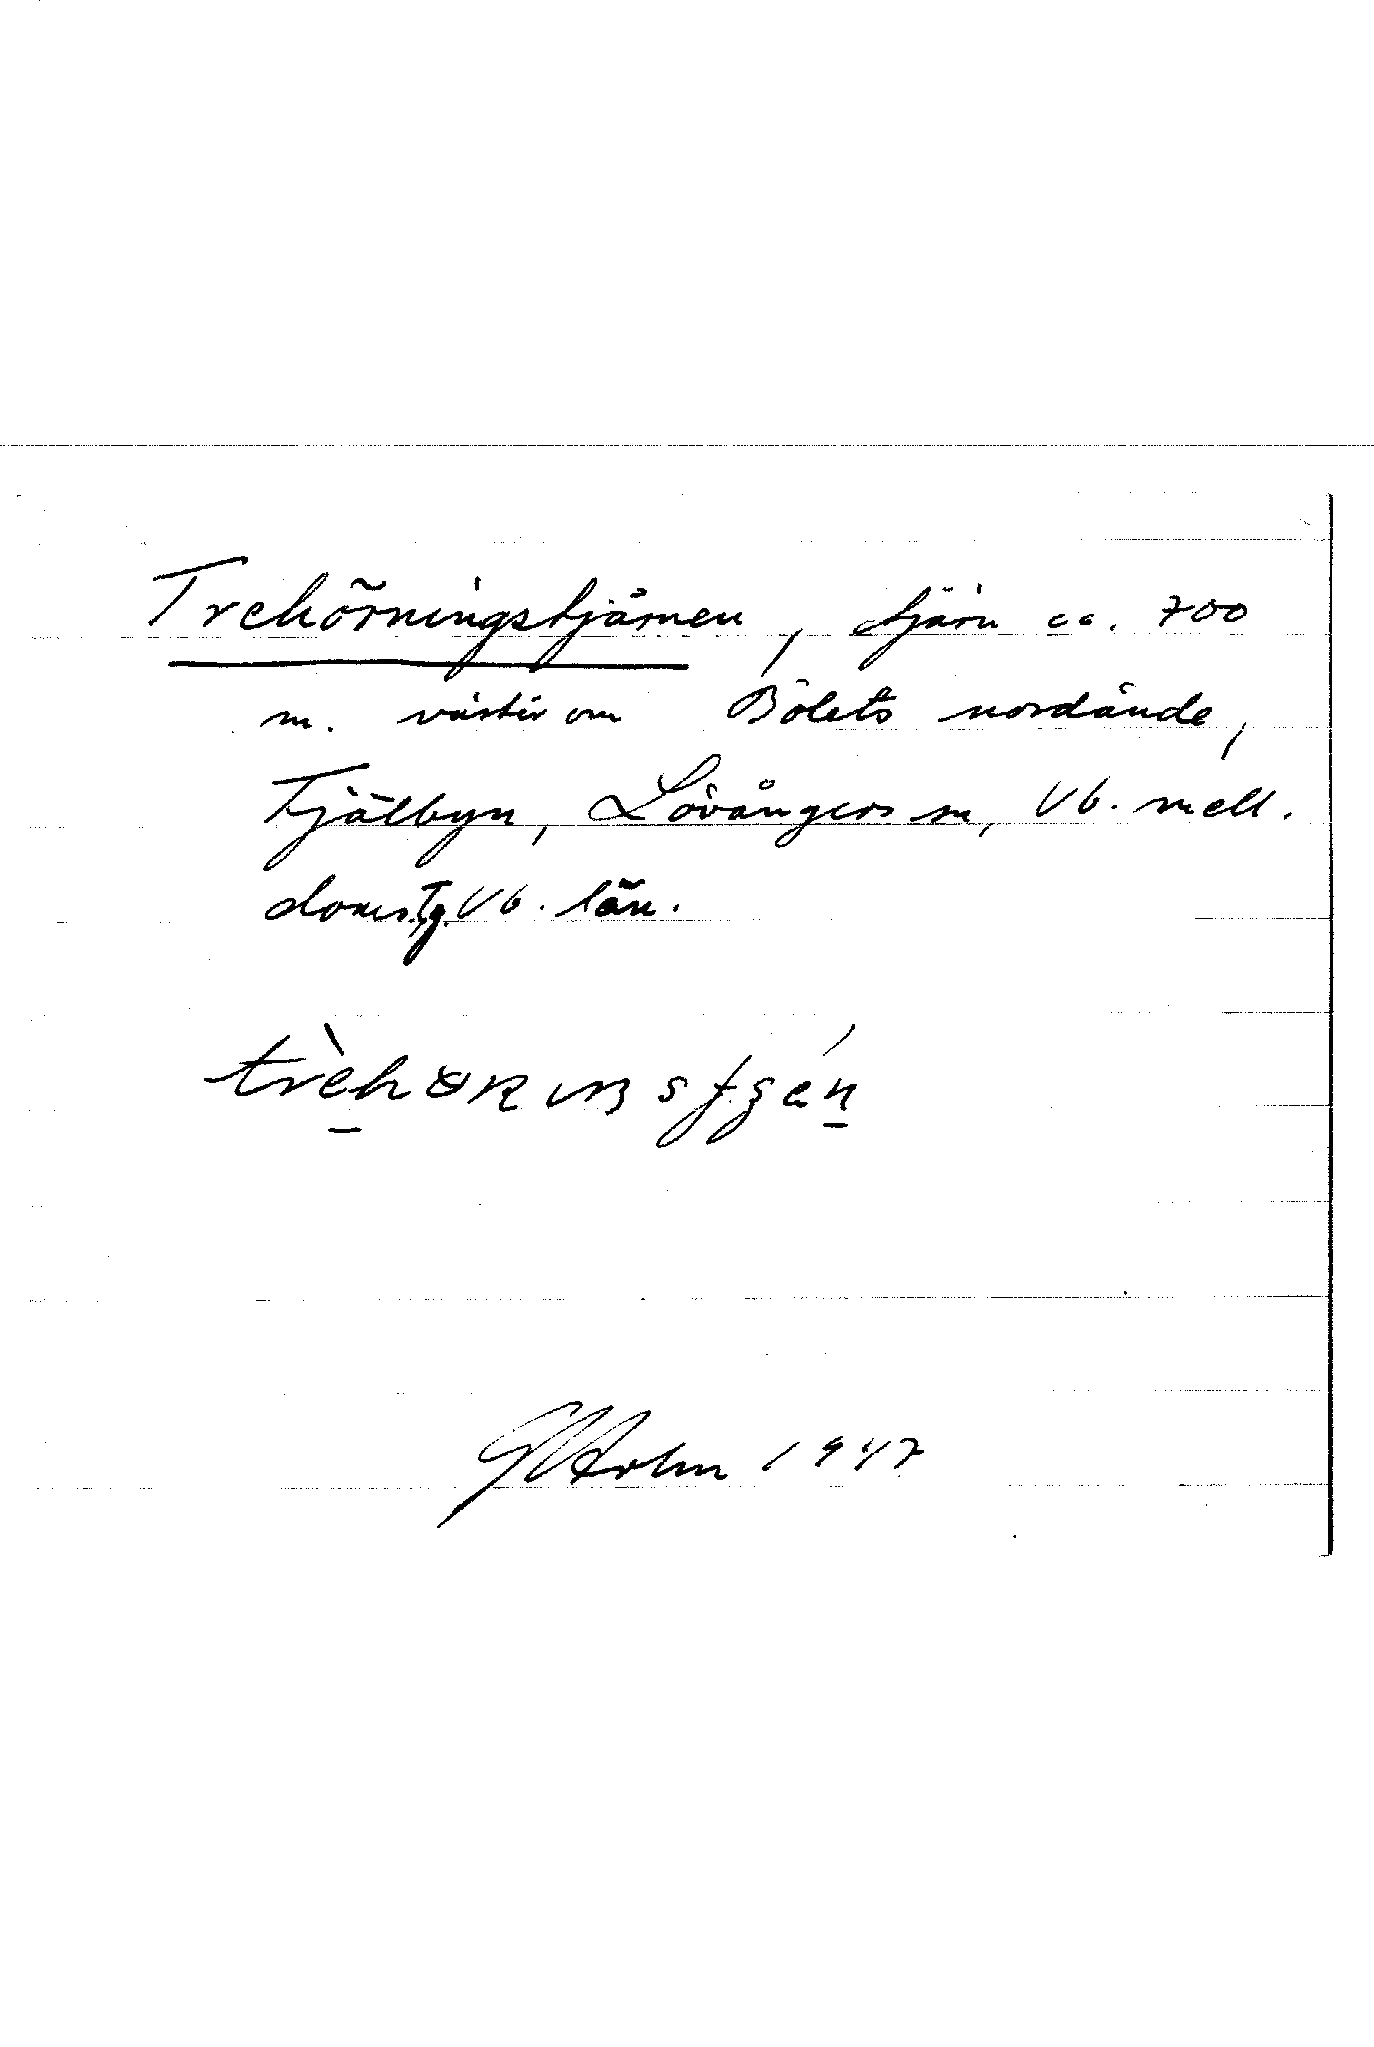 Trehörningstjärnen, tjärn ca. 700
m. väster om Bölets nordände,
Tjälbyn, Lövångers sn, Vb. mell.
doms. Tg. Vb. län.
Holm 1947